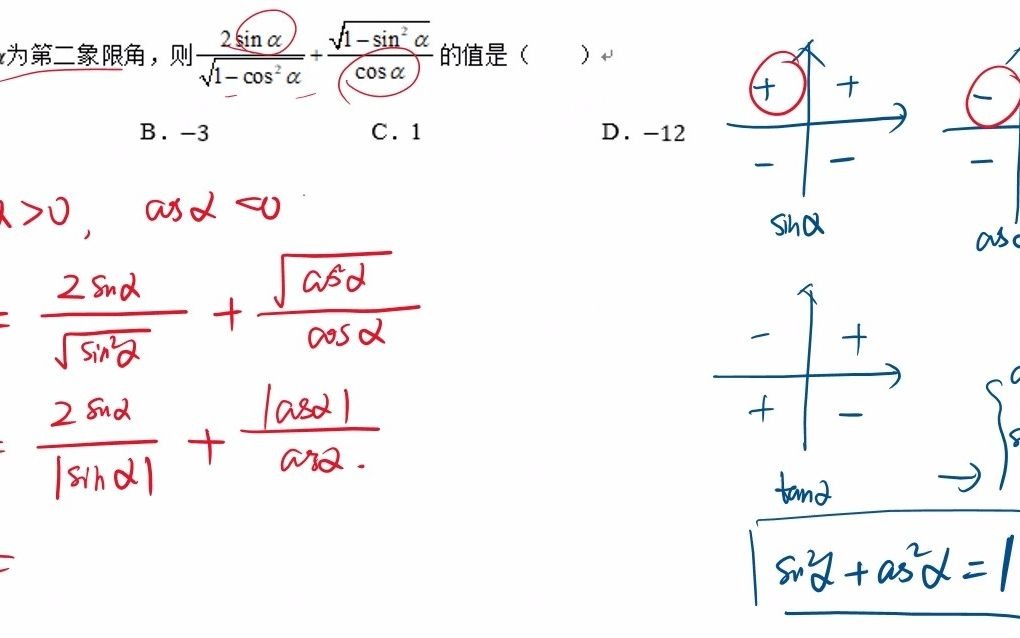 α为第二象限角，则 2 sin α / √(1−cos² α) + √(1−sin² α) / cos α 的值是（　　）
B．−3　C．1　D．−12
α >0, cosα <0
= 2 sinα / √(sin²α) + √(cos²α) / cosα
= 2 sinα / |sinα| + |cosα| / cosα.
=
+ +
− −
sinα
−
−
cos
− +
+ −
tanα
→ {
sin²α + cos²α = 1